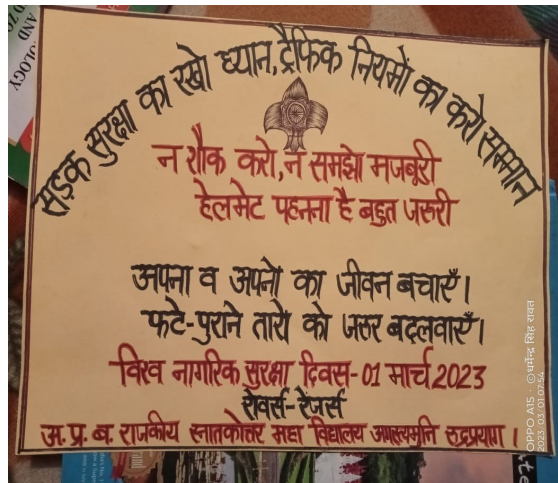 सड़क सुरक्षा का रखो ध्यान, ट्रैफिक नियमों का करो सम्मान
न शौक करो, न समझो मजबूरी
हेलमेट पहनना है बहुत जरुरी
अपना व अपनो का जीवन बचाएँ।
फटे-पुराने तारो को जरुर बदलवाएँ।
विश्व नागरिक सुरक्षा दिवस- 01 मार्च 2023
रोवर्स- रेंजर्स
अ. प्र. ब. राजकीय स्नातकोत्तर महा विद्यालय अगस्त्यमुनि रुद्रप्रयाग।
AND
OLOGY
OPPO A15 · ©धर्मेन्द्र सिंह रावत
2023/03/01 07:54